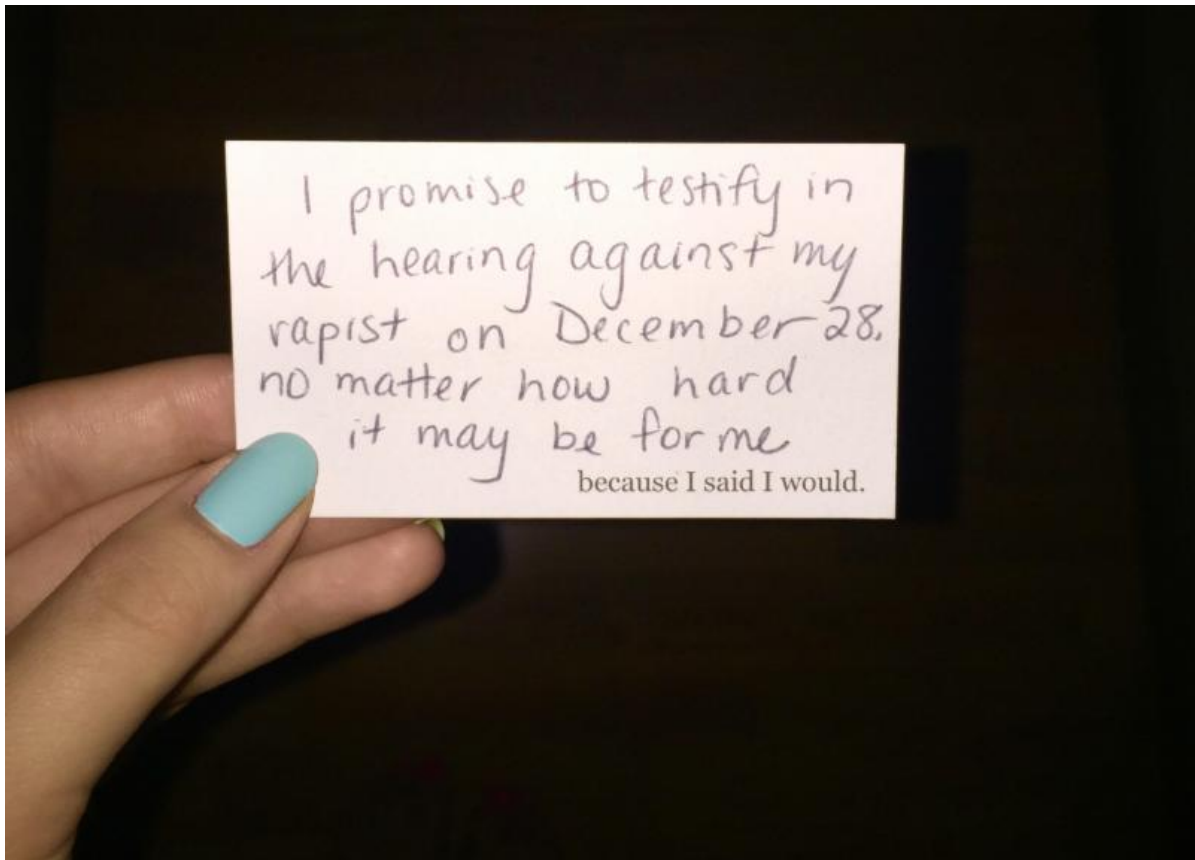 I promise to testify in
the hearing against my
rapist on December 28,
no matter how hard
it may be for me
because I said I would.